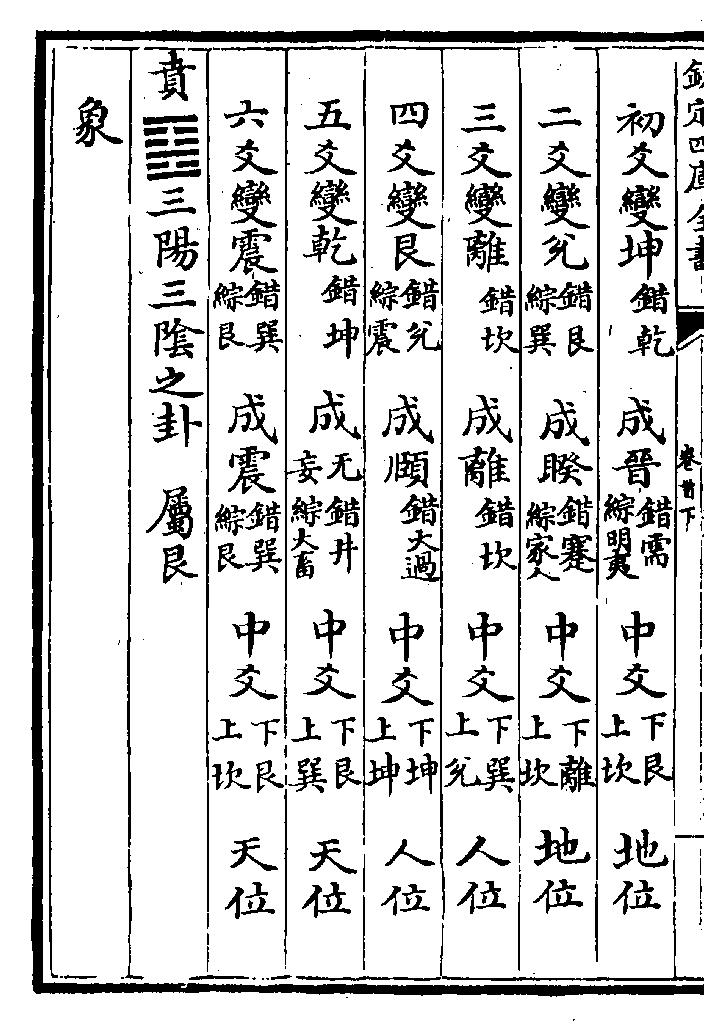 欽定四庫全書
卷首下
初爻變坤 錯乾 成晉 錯需綜明夷 中爻 下艮上坎 地位
二爻變兊 錯艮綜巽 成睽 錯蹇綜家人 中爻 下離上坎 地位
三爻變離 錯坎 成離 錯坎 中爻 下巽上兊 人位
四爻變艮 錯兊綜震 成頤 錯大過 中爻 下坤上坤 人位
五爻變乾 錯坤 成无妄 錯升綜大畜 中爻 下艮上巽 天位
六爻變震 錯巽綜艮 成震 錯巽綜艮 中爻 下艮上坎 天位
賁䷕三陽三隂之卦 屬艮
象